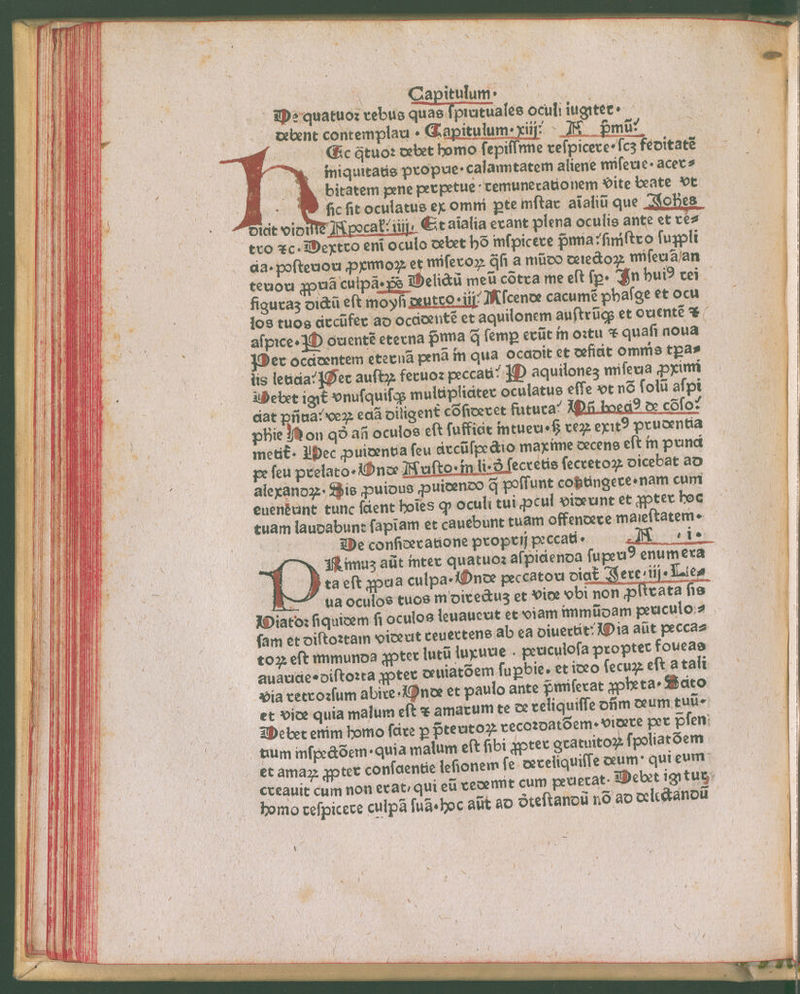 Capitulum·
De quatuor rebus quas spirituales oculi iugiter·
debent contemplari · Capitulum· xiij: A p̄mū:
Sic q̄tuor debet homo sepissime respicere· scꝫ feditatē
iniquitatis proprie· calamitatem aliene miserie· acer⸗
bitatem pene perpetue· remunerationem vite beate vt
sic sit oculatus ex omni ꝑte instar aīaliū que Johēs
dicit vidisse Apocal̄: iiij. Et aīalia erant plena oculis ante et re⸗
tro ⁊c· Dextro enī oculo debet hō inspicere p̄mia: sinistro suppli
cia· posteriori ꝓximoꝝ et miseroꝝ q̄si a mūdo deiectoꝝ miseriā/an
teriori ꝓpriā culpā· p̄s Delictū meū cōtra me est sꝑ· In huiꝰ rei
figuraꝫ dictū est moysi deutro· iij: Ascende cacumē phasge et ocu
los tuos circūfer ad occidentē et aquilonem austrūqꝫ et orientē ⁊
aspice· P orientē eterna p̄mia q̄ semꝑ erūt in ortu ⁊ quasi noua
Per occidentem eternā penā in qua occidit et deficit omnis tpa⸗
lis leticia: Per austꝝ feruor peccati: P aquiloneꝫ miseria ꝓximi
Debet igit̄ vnusquisqꝫ multipliciter oculatus esse vt nō solū aspi
ciat p̄ntia: veꝝ eciā diligent̄ cōsideret futura: Vn̄ boeciꝰ de cōso:
phie Non qd̄ an̄ oculos est sufficit intueri· sꝫ reꝝ exitꝰ prudentia
metit̄· Hec ꝓuidentia seu circūspectio maxime decens est in princi
pe seu prelato· Vnde Aristo· in li· d̄ secretis secretoꝝ dicebat ad
alexandꝝ· Sis ꝓuidus ꝓuidendo q̄ possunt cōtingere· nam cum
euenerint tunc scient hoīes ꝙ oculi tui ꝓcul viderunt et ꝓpter hoc
tuam laudabunt sapīam et cauebunt tuam offendere maiestatem·
De consideratione proprij peccati· A · i·
PRimuꝫ aūt inter quatuor aspicienda superiꝰ enumera
ta est ꝓpria culpa· Vnde peccatori dicit̄ Jere· iij· Le⸗
ua oculos tuos in directuꝫ et vide vbi non ꝓstrata sis
Viator siquidem si oculos leuauerit et viam immūdam periculo⸗
sam et distortam viderit reuertens ab ea diuertit: Via aūt pecca⸗
toꝝ est immunda ꝓpter lutū luxurie · periculosa propter foueas
auaricie· distorta ꝓpter deuiatōem suꝑbie· et ideo secuꝝ est a tali
via retrorsum abire· Vnde et paulo ante p̄miserat ꝓpheta· Scito
et vide quia malum est ⁊ amarum te dereliquisse dn̄m deum tuū·
Debet enim homo scire ꝑ p̄teritoꝝ recordatōem· videre per p̄sen
tium inspectōem· quia malum est sibi ꝓpter gratuitoꝝ spoliatōem
et amaꝝ ꝓpter consciencie lesionem se dereliquisse deum· qui eum
creauit cum non erat, qui eū redemit cum perierat· Debet igitur
homo respicere culpā suā· hoc aūt ad d̄testandū nō ad delectandū